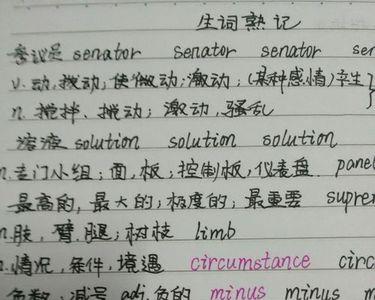 生词熟记
参议员 senator senator senator sen
v. 动,拨动;使微动;激动;(某种感情)产生
n. 搅拌、搅动;激动,骚乱
溶液 solution solution solution
n. 专门小组;面,板;控制板,仪表盘 pane
最高的,最大的;极度的;最重要 supre
n. 肢,臂,腿;树枝 limb
n. 情况,条件,境遇 circumstance circ
负数;减号 adj. 负的 minus minus m